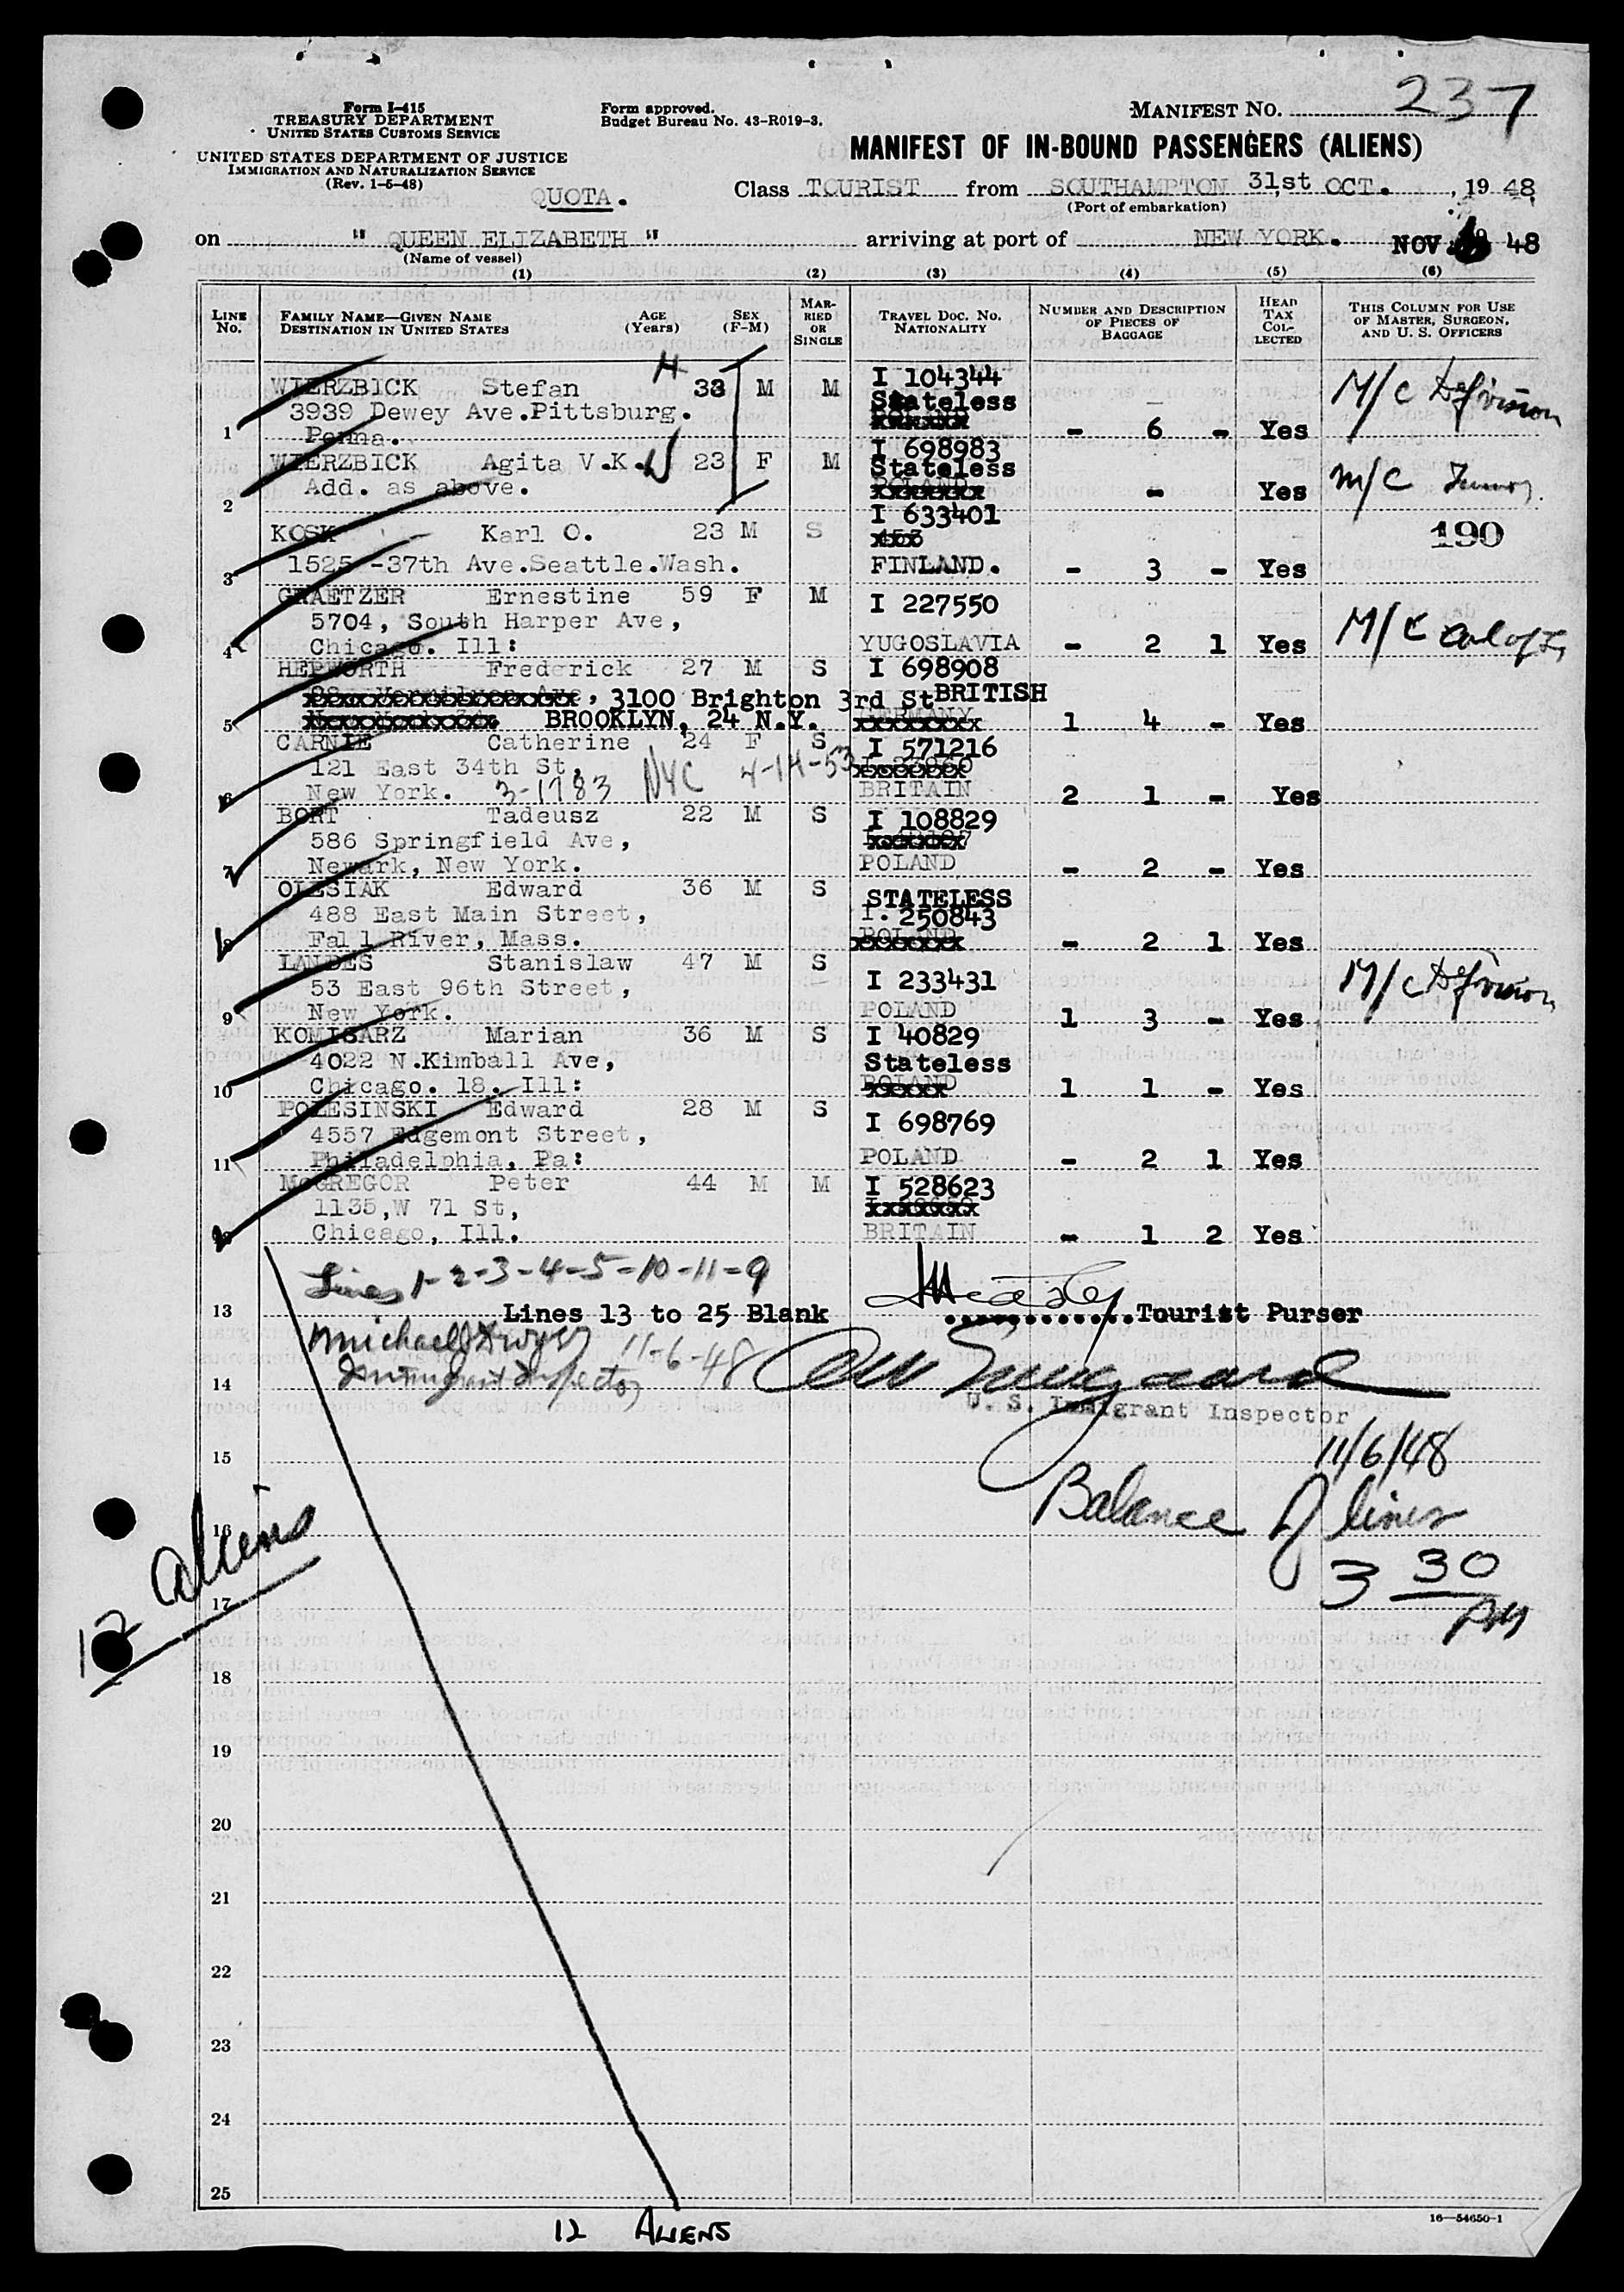 237
Form I-415
TREASURY DEPARTMENT
UNITED STATES CUSTOMS SERVICE
Form approved.
Budget Bureau No. 43-R019-3.
MANIFEST NO.
UNITED STATES DEPARTMENT OF JUSTICE
IMMIGRATION AND NATURALIZATION SERVICE
(Rev. 1-5-48)
MANIFEST OF IN-BOUND PASSENGERS (ALIENS)
QUOTA.
Class TOURIST from SOUTHAMPTON 31,st OCT. , 19 48.
(Port of embarkation)
on " QUEEN ELIZABETH " arriving at port of NEW YORK. NOV 6 48
(Name of vessel)
(1) (2) (3) (4) (5) (6)
LINE No. FAMILY NAME—GIVEN NAME DESTINATION IN UNITED STATES AGE (Years) SEX (F-M) MARRIED OR SINGLE TRAVEL DOC. NO. NATIONALITY NUMBER AND DESCRIPTION OF PIECES OF BAGGAGE HEAD TAX COLLECTED THIS COLUMN FOR USE OF MASTER, SURGEON, AND U. S. OFFICERS
H
WIERZBICK Stefan 33 M M I 104344 M/C Df vision
3939 Dewey Ave.Pittsburg. Stateless
1 Penna. - 6 - Yes
WIERZBICK Agita V.K. W 23 F M I 698983
Add. as above. Stateless
2 - Yes M/C
KOSK Karl O. 23 M S I 633401 190
3 1525 -37th Ave.Seattle.Wash. FINLAND. - 3 - Yes
GRAETZER Ernestine 59 F M I 227550
5704, South Harper Ave,
4 Chicago. Ill: YUGOSLAVIA - 2 1 Yes M/C
HEPWORTH Frederick 27 M S I 698908
, 3100 Brighton 3rd St BRITISH
5 BROOKLYN, 24 N.Y. 1 4 - Yes
CARNIE Catherine 24 F S I 571216
121 East 34th St,
6 New York. 3-1783 NYC 4-14-53 BRITAIN 2 1 - Yes
BORT Tadeusz 22 M S I 108829
586 Springfield Ave,
7 Newark, New York. POLAND - 2 - Yes
OLESIAK Edward 36 M S STATELESS
488 East Main Street, I. 250843
8 Fall River, Mass. - 2 1 Yes
LANDES Stanislaw 47 M S I 233431 M/C Df vision
53 East 96th Street,
9 New York. POLAND 1 3 - Yes
KOMISARZ Marian 36 M S I 40829
4022 N.Kimball Ave, Stateless
10 Chicago. 18. Ill: 1 1 - Yes
POLESINSKI Edward 28 M S I 698769
4557 Edgemont Street,
11 Philadelphia, Pa: POLAND - 2 1 Yes
McGREGOR Peter 44 M M I 528623
1135,W 71 St,
12 Chicago, Ill. BRITAIN - 1 2 Yes
Lines 1-2-3-4-5-10-11-9
13 Lines 13 to 25 Blank Tourist Purser
Michael Dwyer 11-6-48
14 Immigrant Inspector
U. S. Immigrant Inspector
15 11/6/48
16 Balance of lines
12 Aliens
17 3 30
PM
18
19
20
21
22
23
24
25
12 ALIENS
16—54650-1